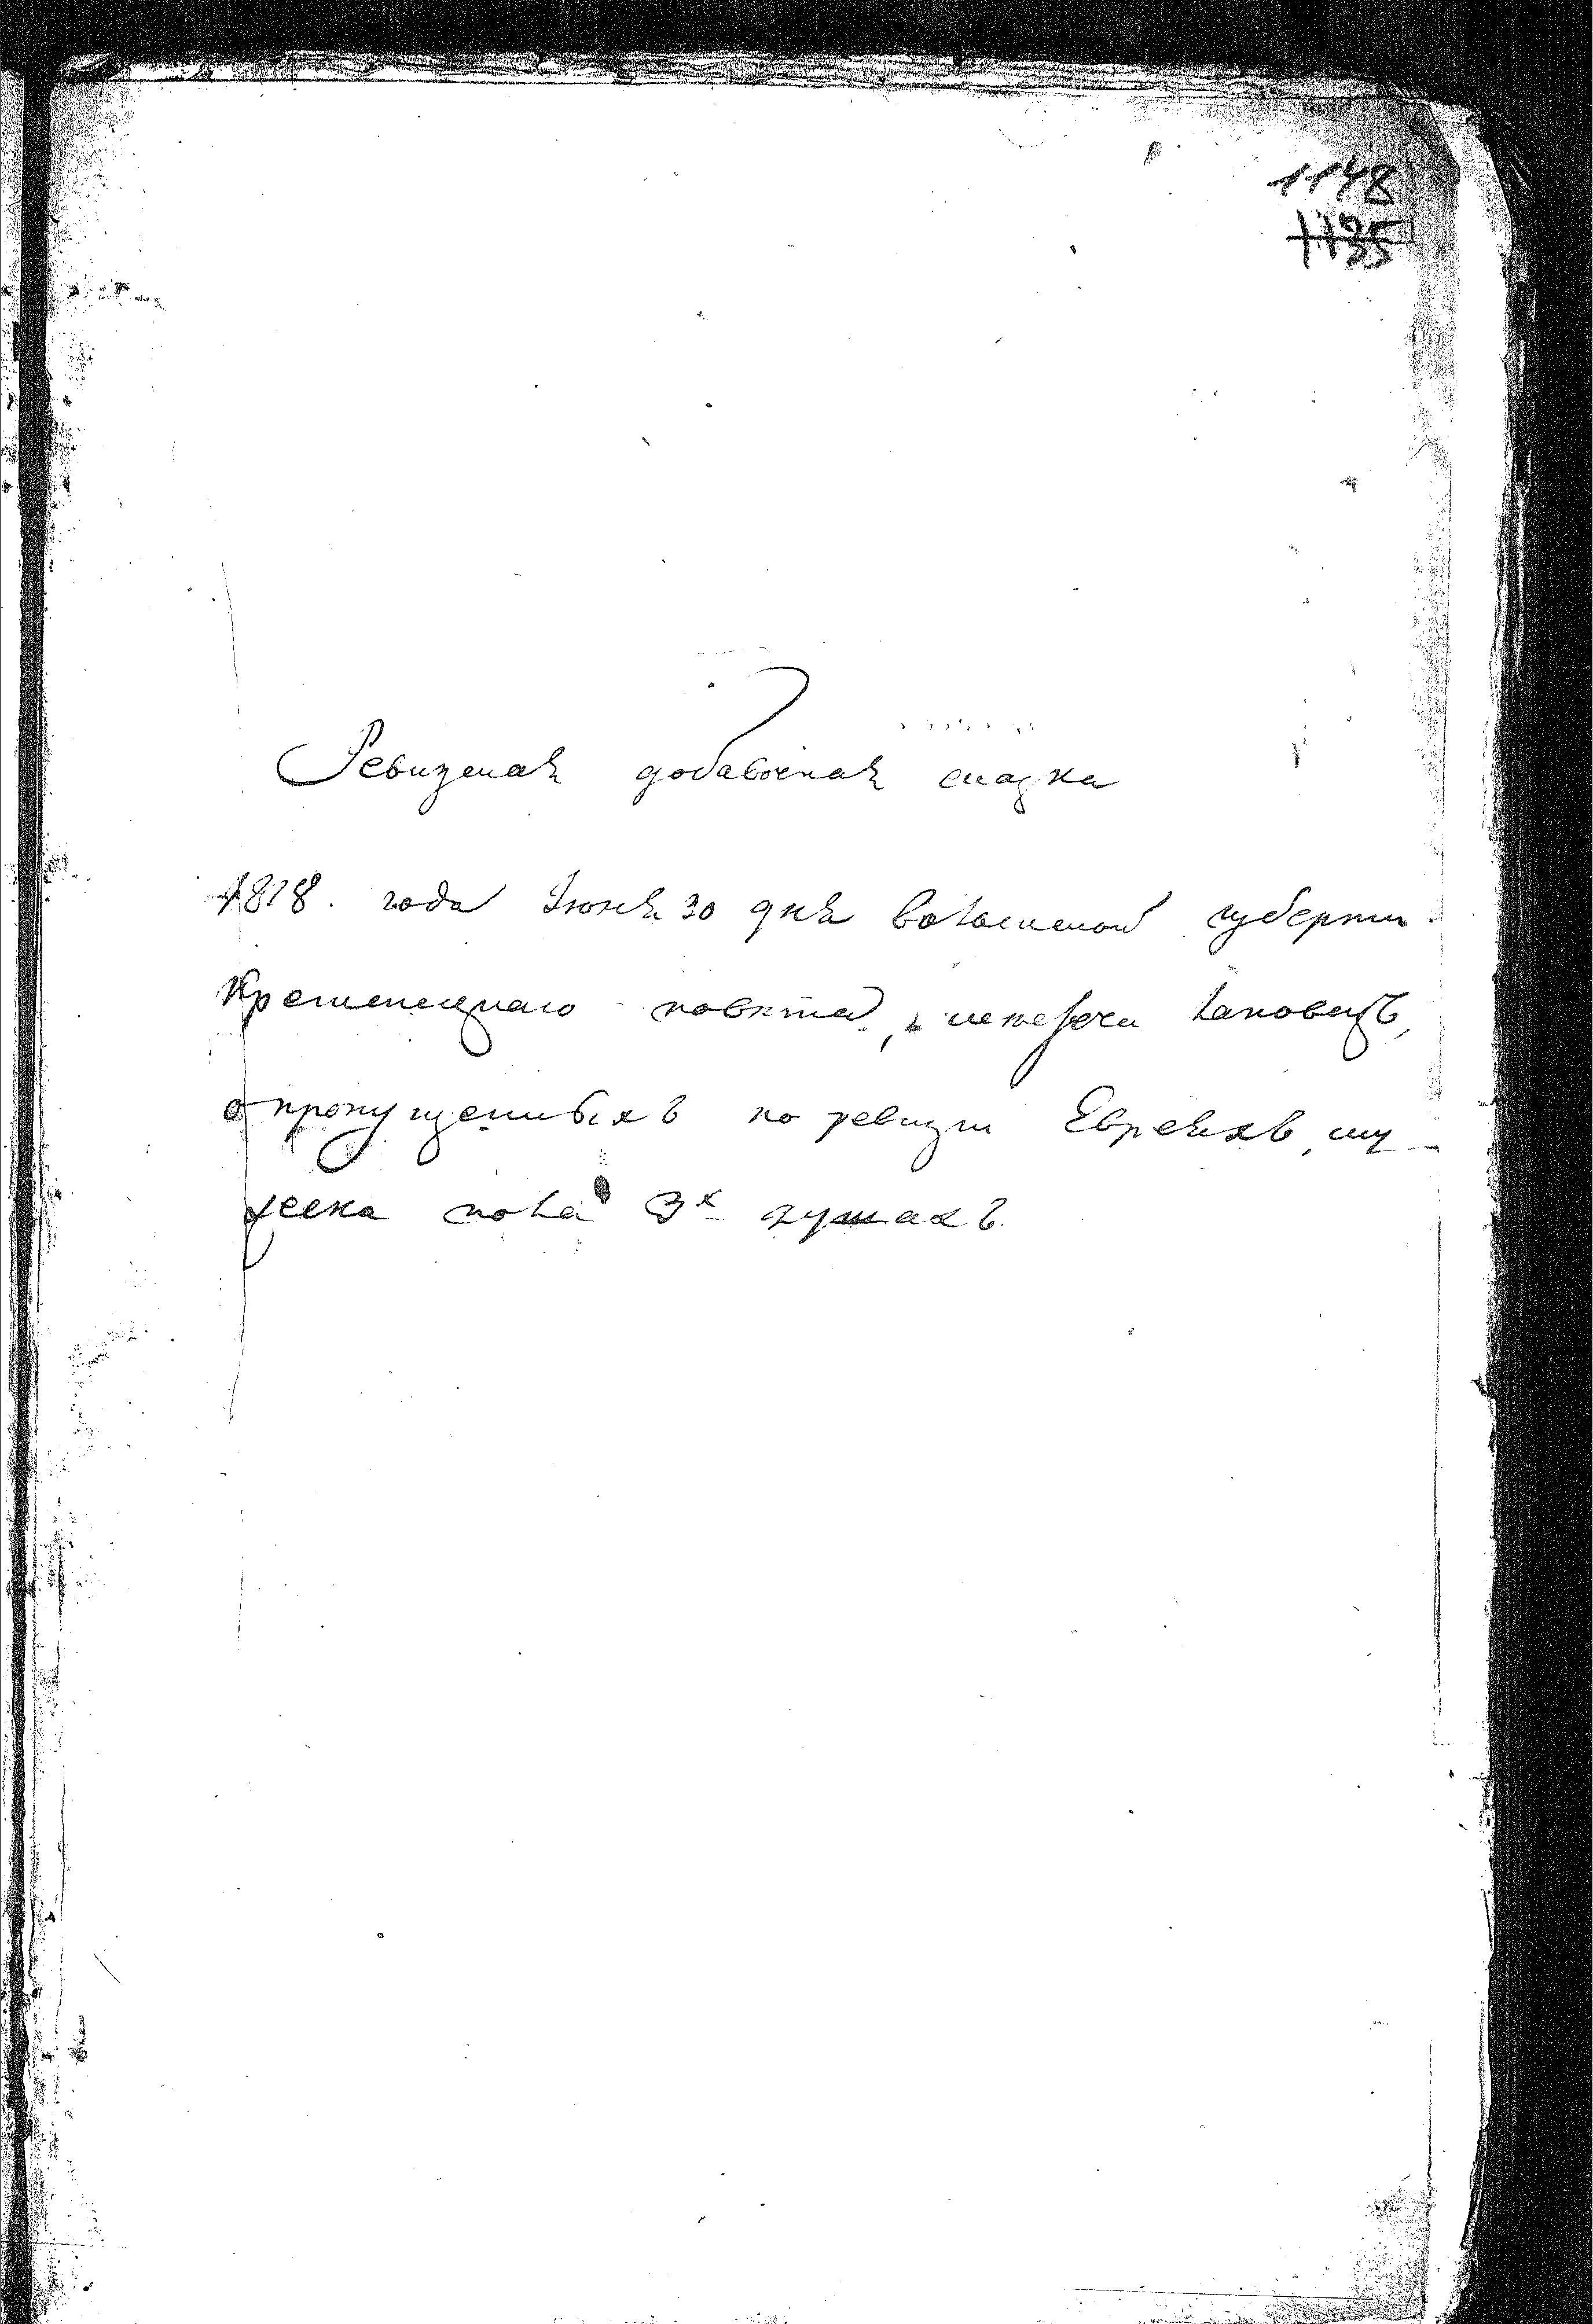 1148
1135
Ревизская добавочная сказка
1818. года Июня 30 дня волынской губернии
Кременецкаго повѣта, местечка Лановецъ,
о пропущенныхъ по ревизіи Евреяхъ, му-
жеска пола 3х душахъ.